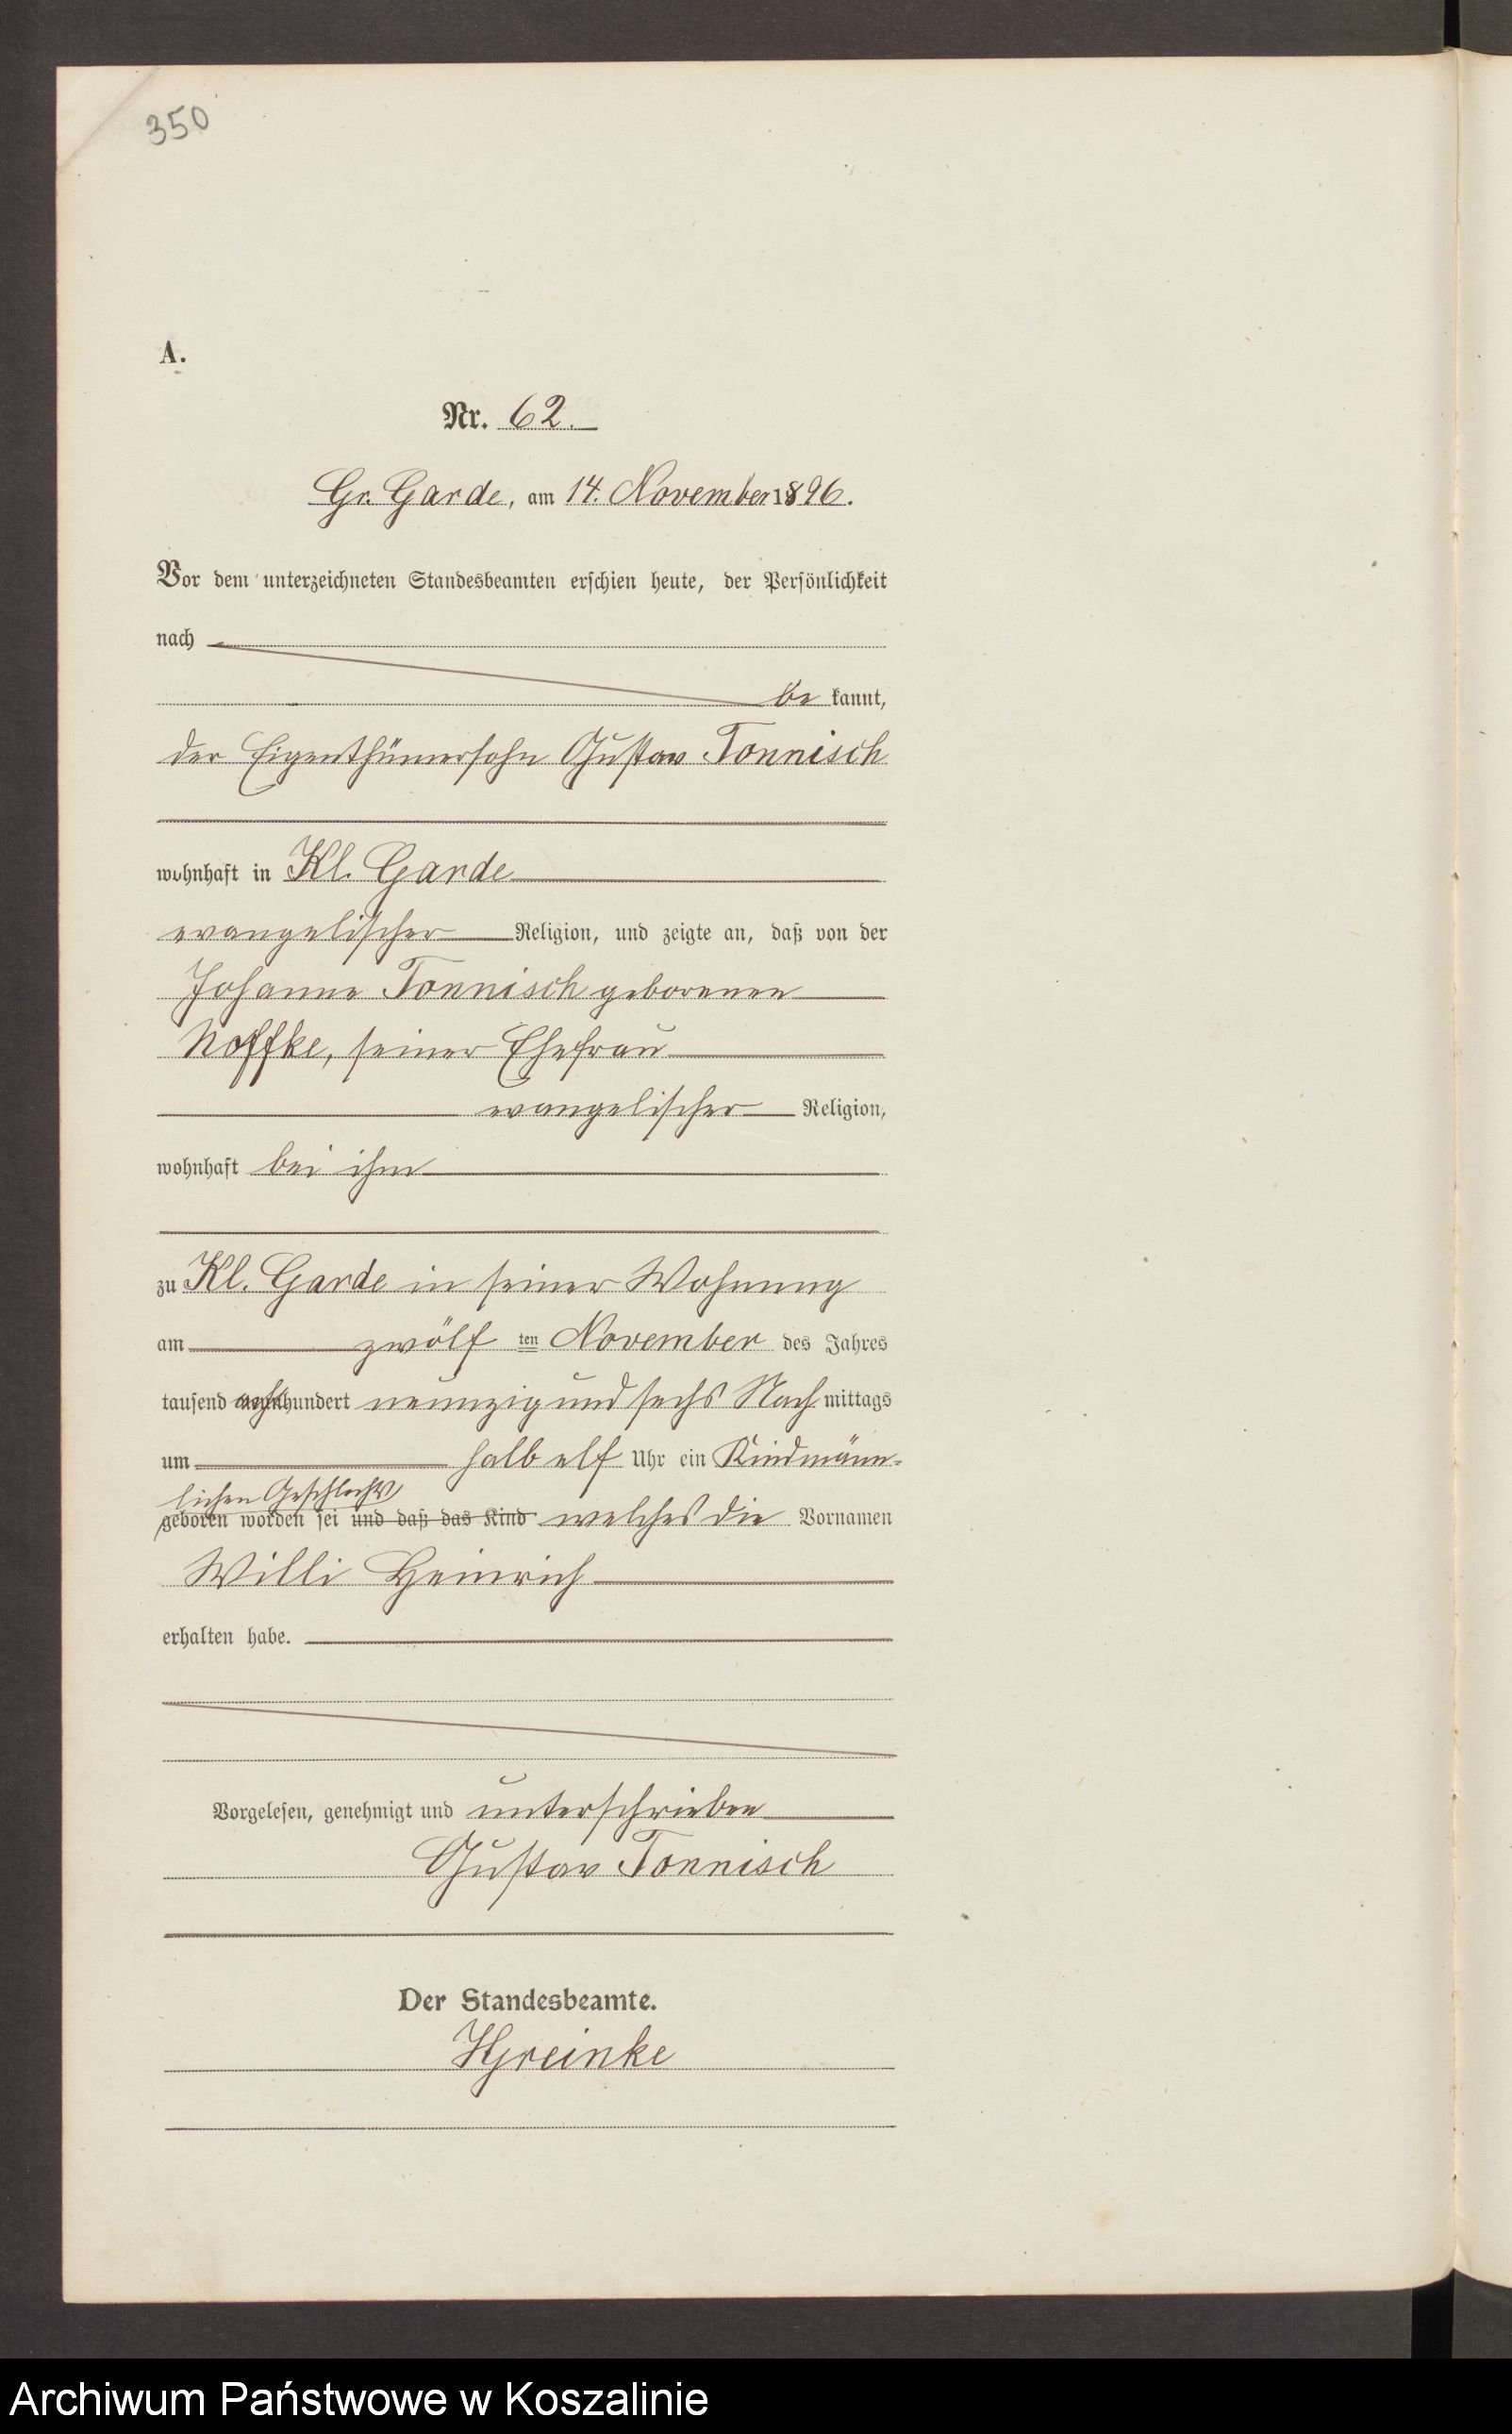 350
A.
Nr. 62.
Gr. Garde, am 14. November 1896.
Vor dem unterzeichneten Standesbeamten erschien heute, der Persönlichkeit
nach
be kannt,
der Eigenthümersohn Gustav Tonnisch
wohnhaft in Kl. Garde
evangelischer Religion, und zeigte an, daß von der
Johanne Tonnisch geborenen
Noffke, seiner Ehefrau
evangelischer Religion,
wohnhaft bei ihm
zu Kl. Garde in seiner Wohnung
am zwölf ten November des Jahres
tausend acht hundert neunzig und sechs Nach mittags
um halb elf Uhr ein Kind männ-
lichen Geschlechts
geboren worden sei und daß das Kind welches die Vornamen
Willi Heinrich
erhalten habe.
Vorgelesen, genehmigt und unterschrieben
Gustav Tonnisch
Der Standesbeamte.
Archiwum Państwowe w Koszalinie